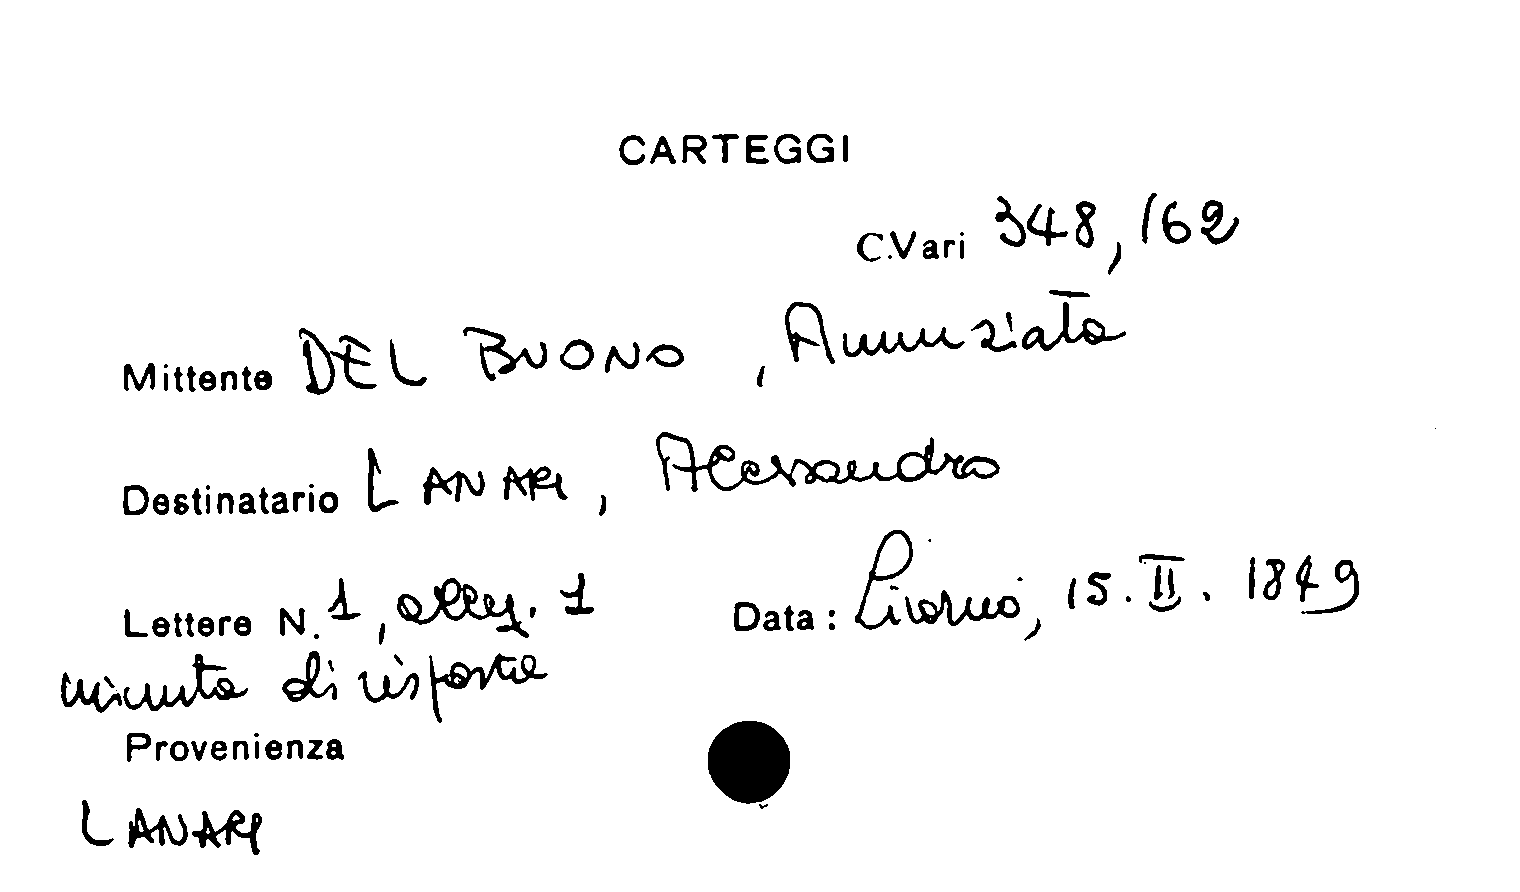 CARTEGGI
C.Vari 348,162
Mittente DEL BUONO, Annunziata
Destinatario LANARI, Alessandro
Lettere N. 1, alleg. 1 Data: Livorno, 15.II.1849
minuta di risposta
Provenienza
LANARI